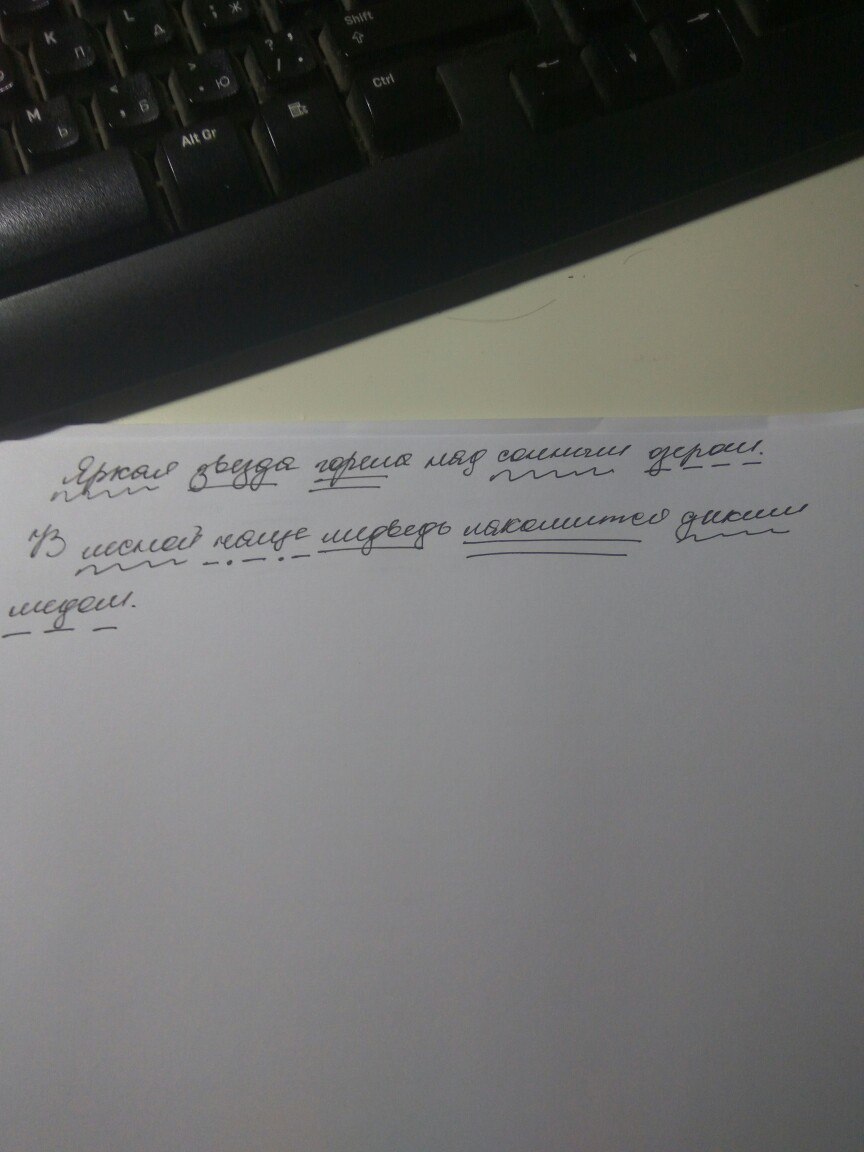 L Д : ; Ж Shift
K Л
< , Б > . Ю ? / , . Ctrl
M Ь Alt Gr
Яркая звезда горела над сонным озером.
В лесной чаще медведь лакомится диким
медом.